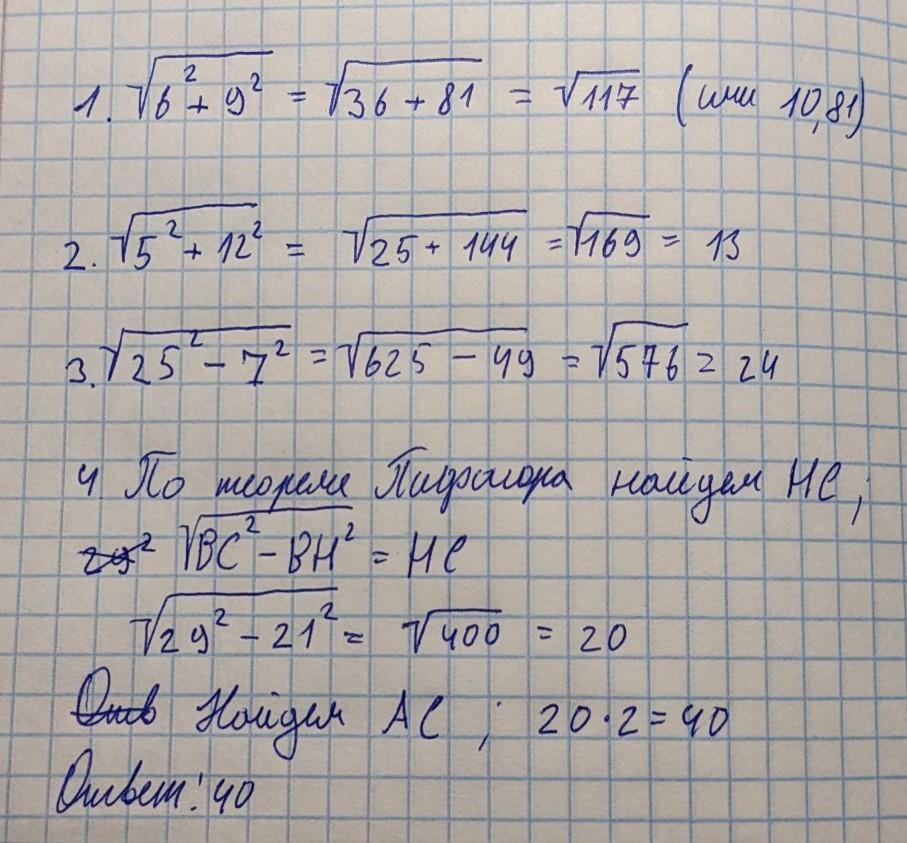 1. √6² + 9² = √36 + 81 = √117 (или 10,81)
2. √5² + 12² = √25 + 144 = √169 = 13
3. √25² - 7² = √625 - 49 = √576 = 24
4 По теореме Пифагора найдем HC;
29² √BC² - BH² = HC
√29² - 21² = √400 = 20
Отв Найдем AC ; 20 · 2 = 40
Ответ: 40